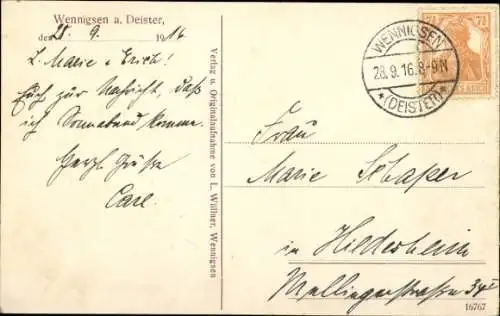 Wennigsen a. Deister,
den 28. 9. 1916
L. Marie u Erich!
Euch zur Nachricht, daß
ich Sonnabend komme.
Herzl. Grüße
Carl.
Verlag u. Originalaufnahme von L. Wüllner, Wennigsen
WENNIGSEN
28.9.16.8-9N
*(DEISTER)*
7½ 7½
Frau
Marie Schaper
in Hildesheim
34 I
16767